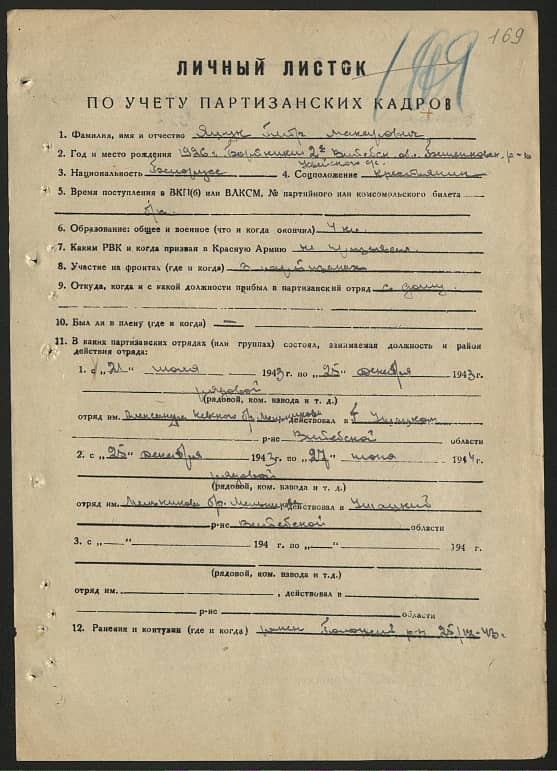 169
169
ЛИЧНЫЙ ЛИСТОК
ПО УЧЕТУ ПАРТИЗАНСКИХ КАДРОВ
1. Фамилия, имя и отчество Яцук Петр Макарович
2. Год и место рождения 1926 г. 2й Витебск. об. Бешенкович. р-н
3. Национальность Белорусс 4. Соцположение крестьянин
5. Время поступления в ВКП(б) или ВЛКСМ, № партийного или комсомольского билета
б/п
6. Образование: общее и военное (что и когда окончил) 4 кл.
7. Каким РВК и когда призван в Красную Армию не призывался
8. Участие на фронтах (где и когда) в партизанах
9. Откуда, когда и с какой должности прибыл в партизанский отряд с дому.
10. Был ли в плену (где и когда) —
11. В каких партизанских отрядах (или группах) состоял, занимаемая должность и район
действия отряда:
1. с „21" июля 1943 г. по „25" декабря 1943 г.
рядовой
(рядовой, ком. взвода и т. д.)
отряд им. Александра Невского бр. Мельникова действовал в Ушацком
р-не Витебской области
2. с „25" декабря 1943 г. по „27" июня 1944 г.
рядовой
(рядовой, ком. взвода и т.д.)
отряд им. Мельникова бр. Мельникова действовал в Ушацкий
р-не Витебской области
3. с „—"— 194 г. по „—"— 194 г.
(рядовой, ком. взвода и т.д.)
отряд им. , действовал в
р-не области
12. Ранения и контузии (где и когда) ранен р-н 25/XII-43 г.